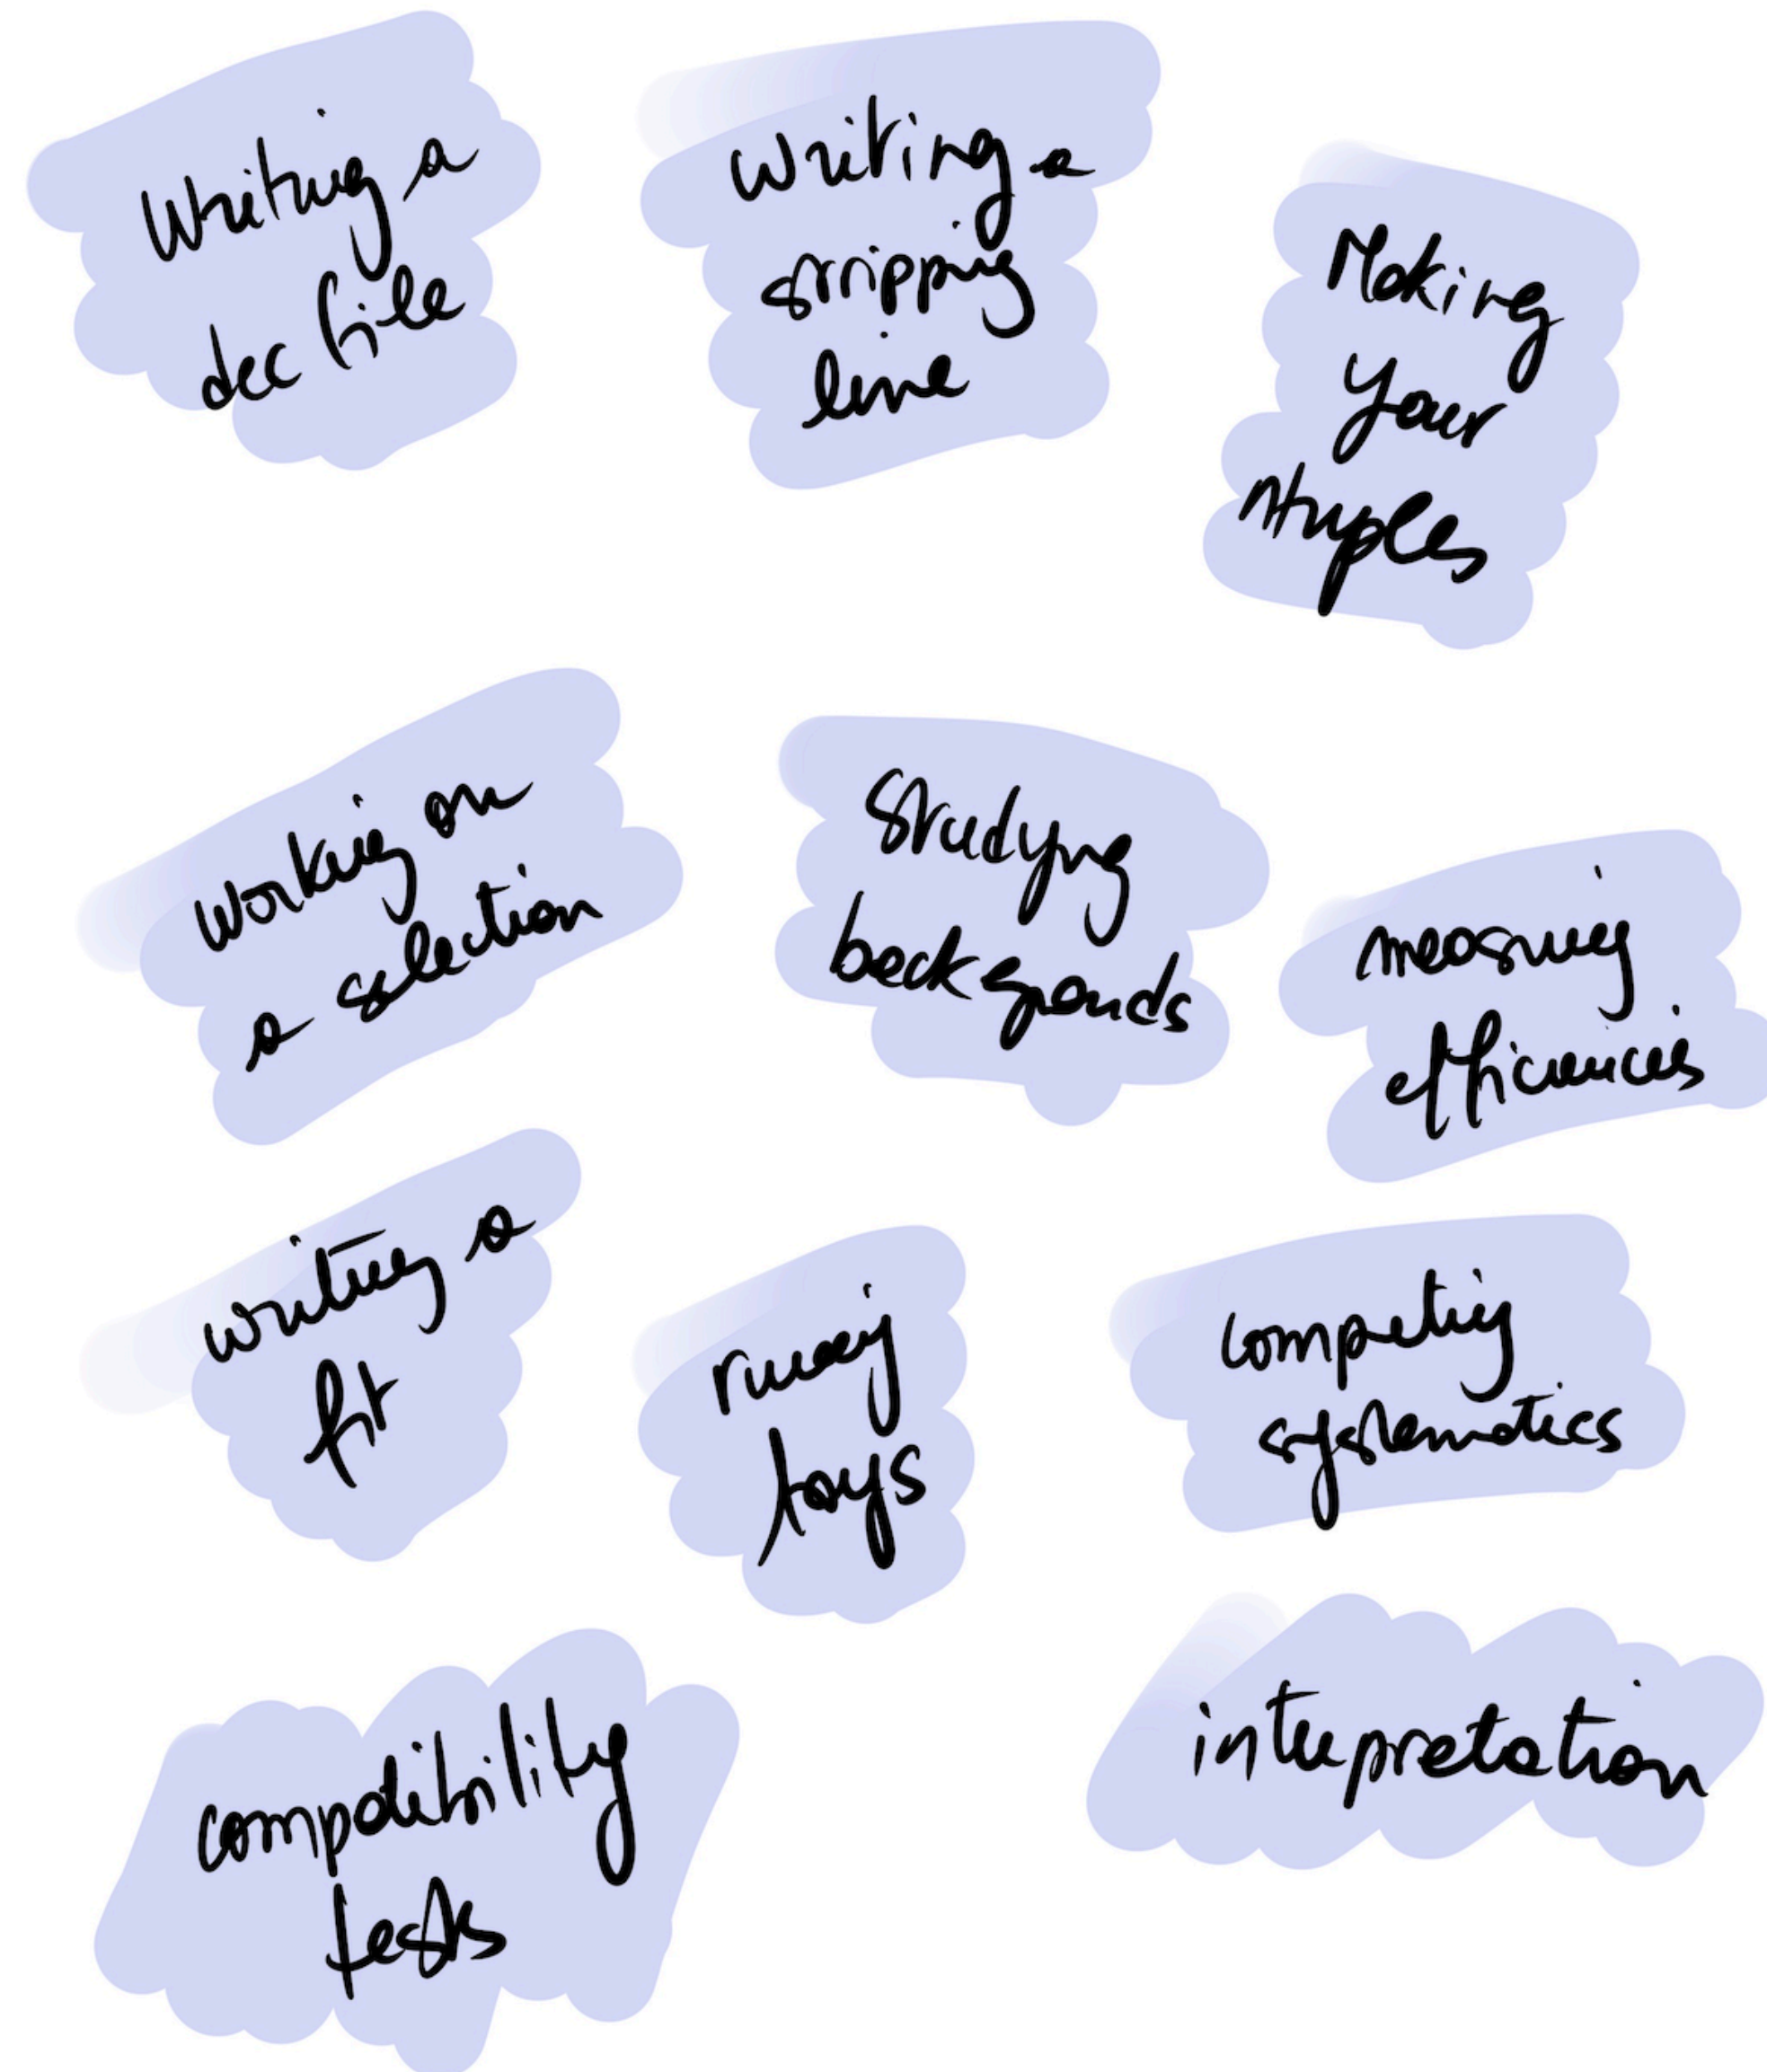 Writing a
dec file
Writing a
stripping
line
Making
your
ntuples
Working on
a selection
Studying
backgrounds
measuring
efficiencies
writing a
fit
running
toys
computing
systematics
compatibility
tests
interpretation